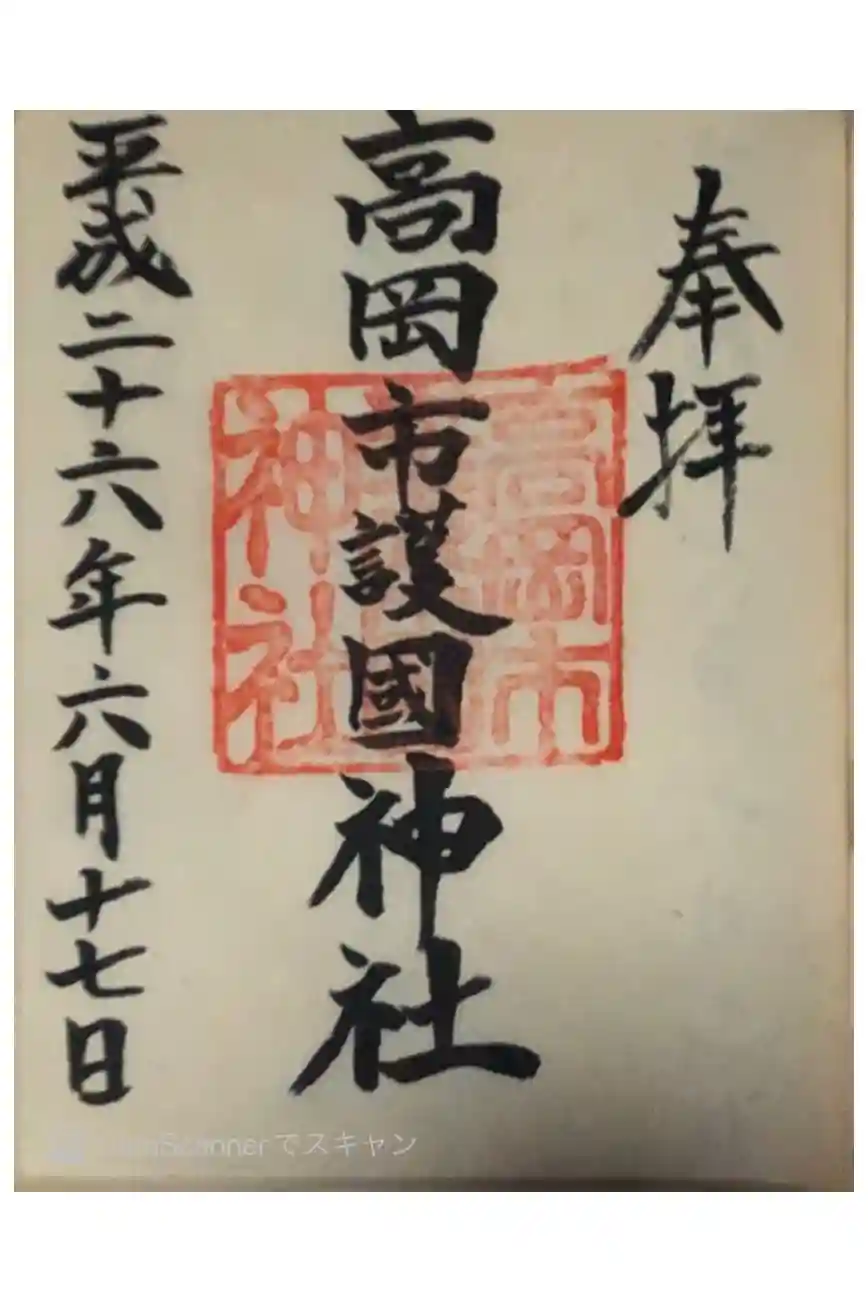 奉拝
高岡市護國神社
平成二十六年六月十七日
高岡市
神社
Scannerでスキャン